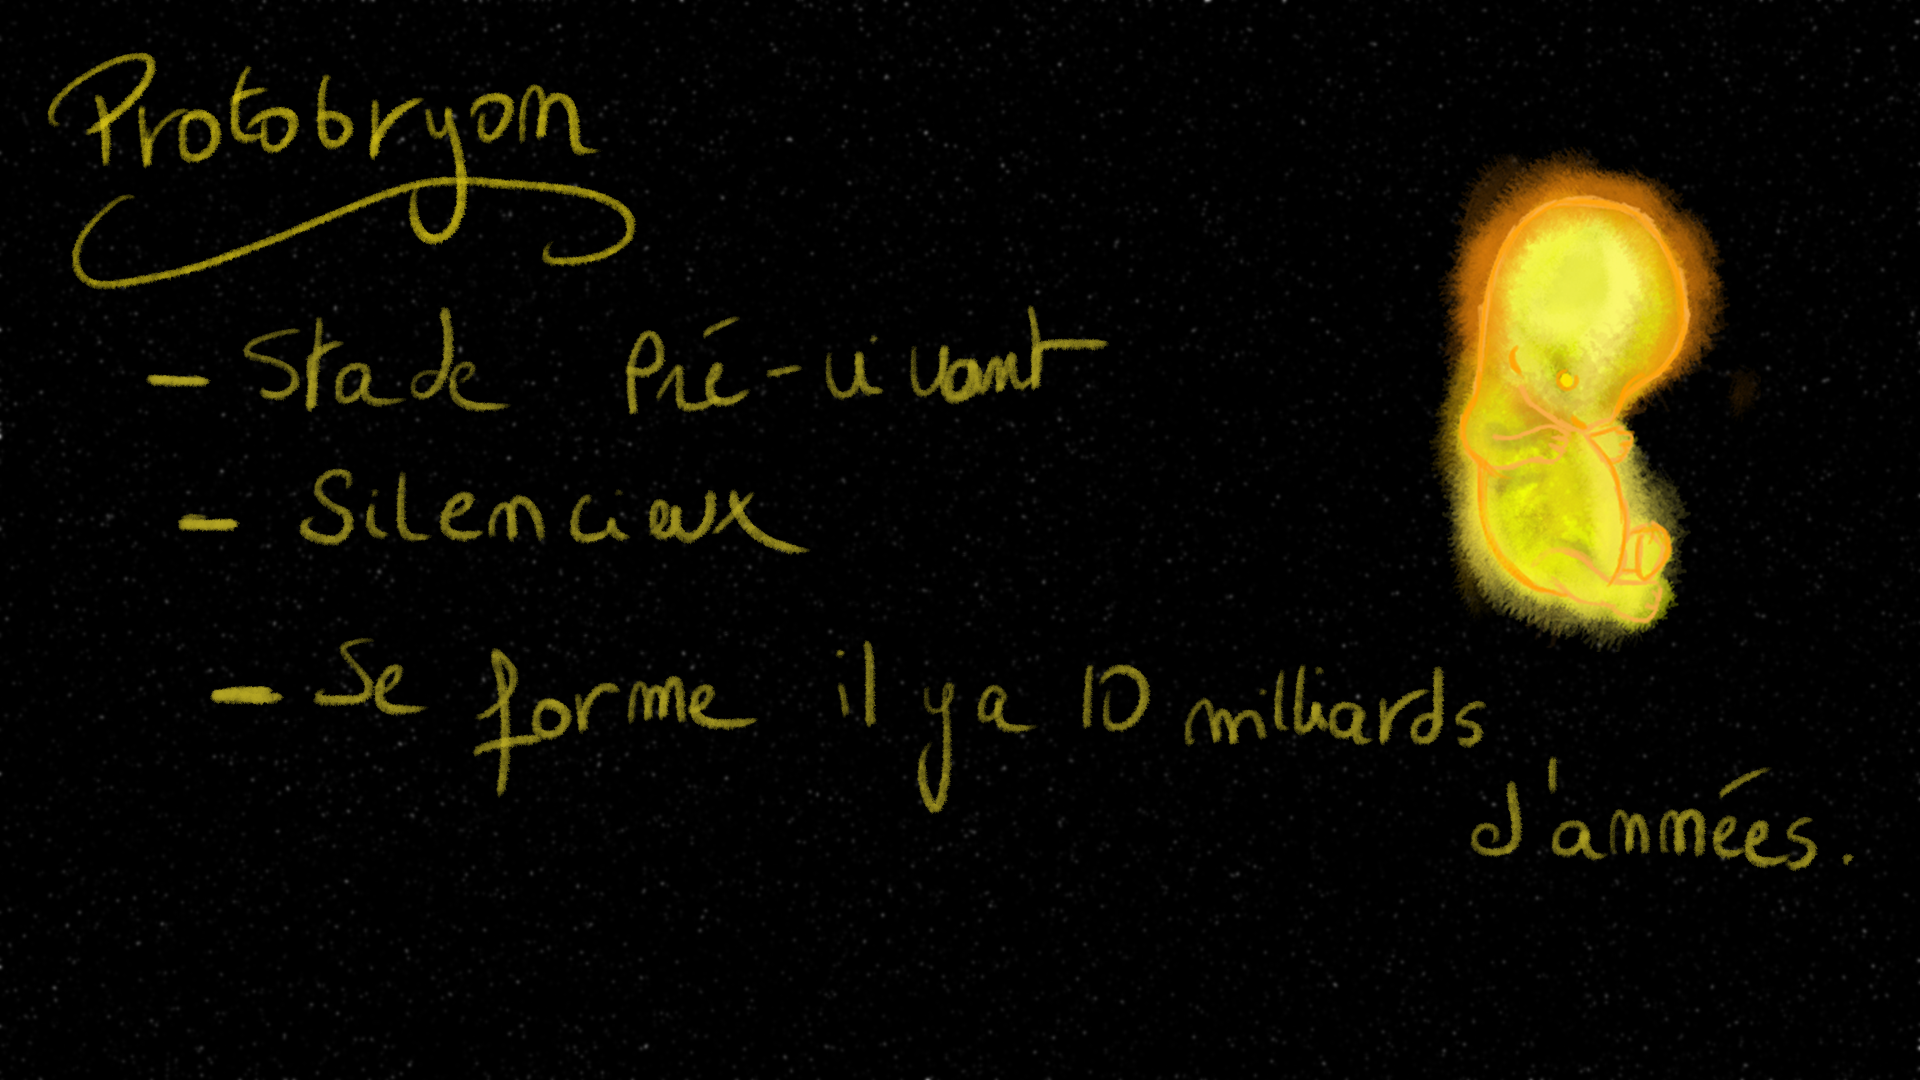 Protobryon
- Stade Pré-vivant
- Silencieux
- Se forme il y a 10 milliards
d'années.